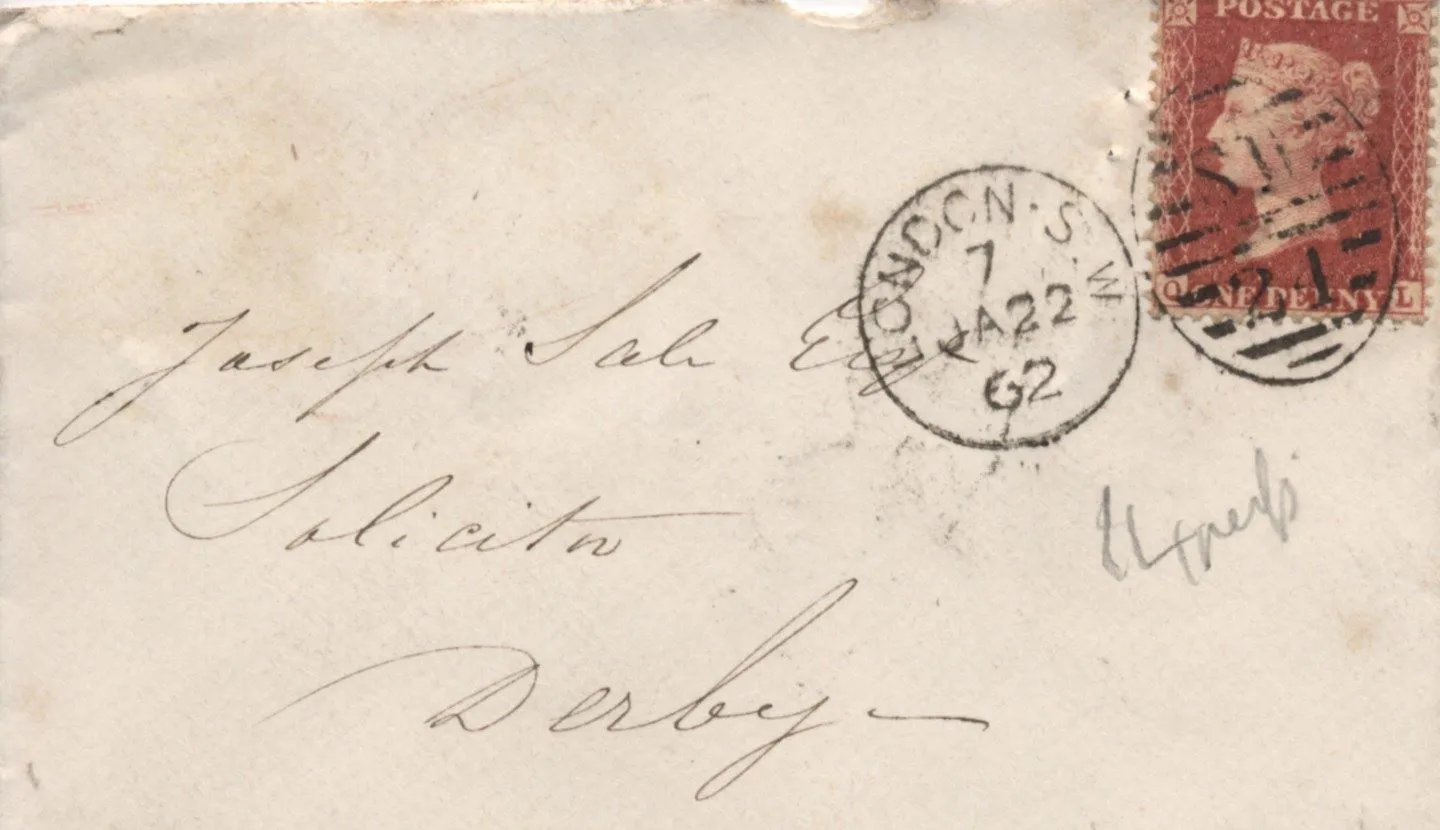 POSTAGE
SW
21
ONE PENNY
Q L
LONDON · S.W
7
JA 22
62
Joseph Sale Esqr
Solicitor
Derby